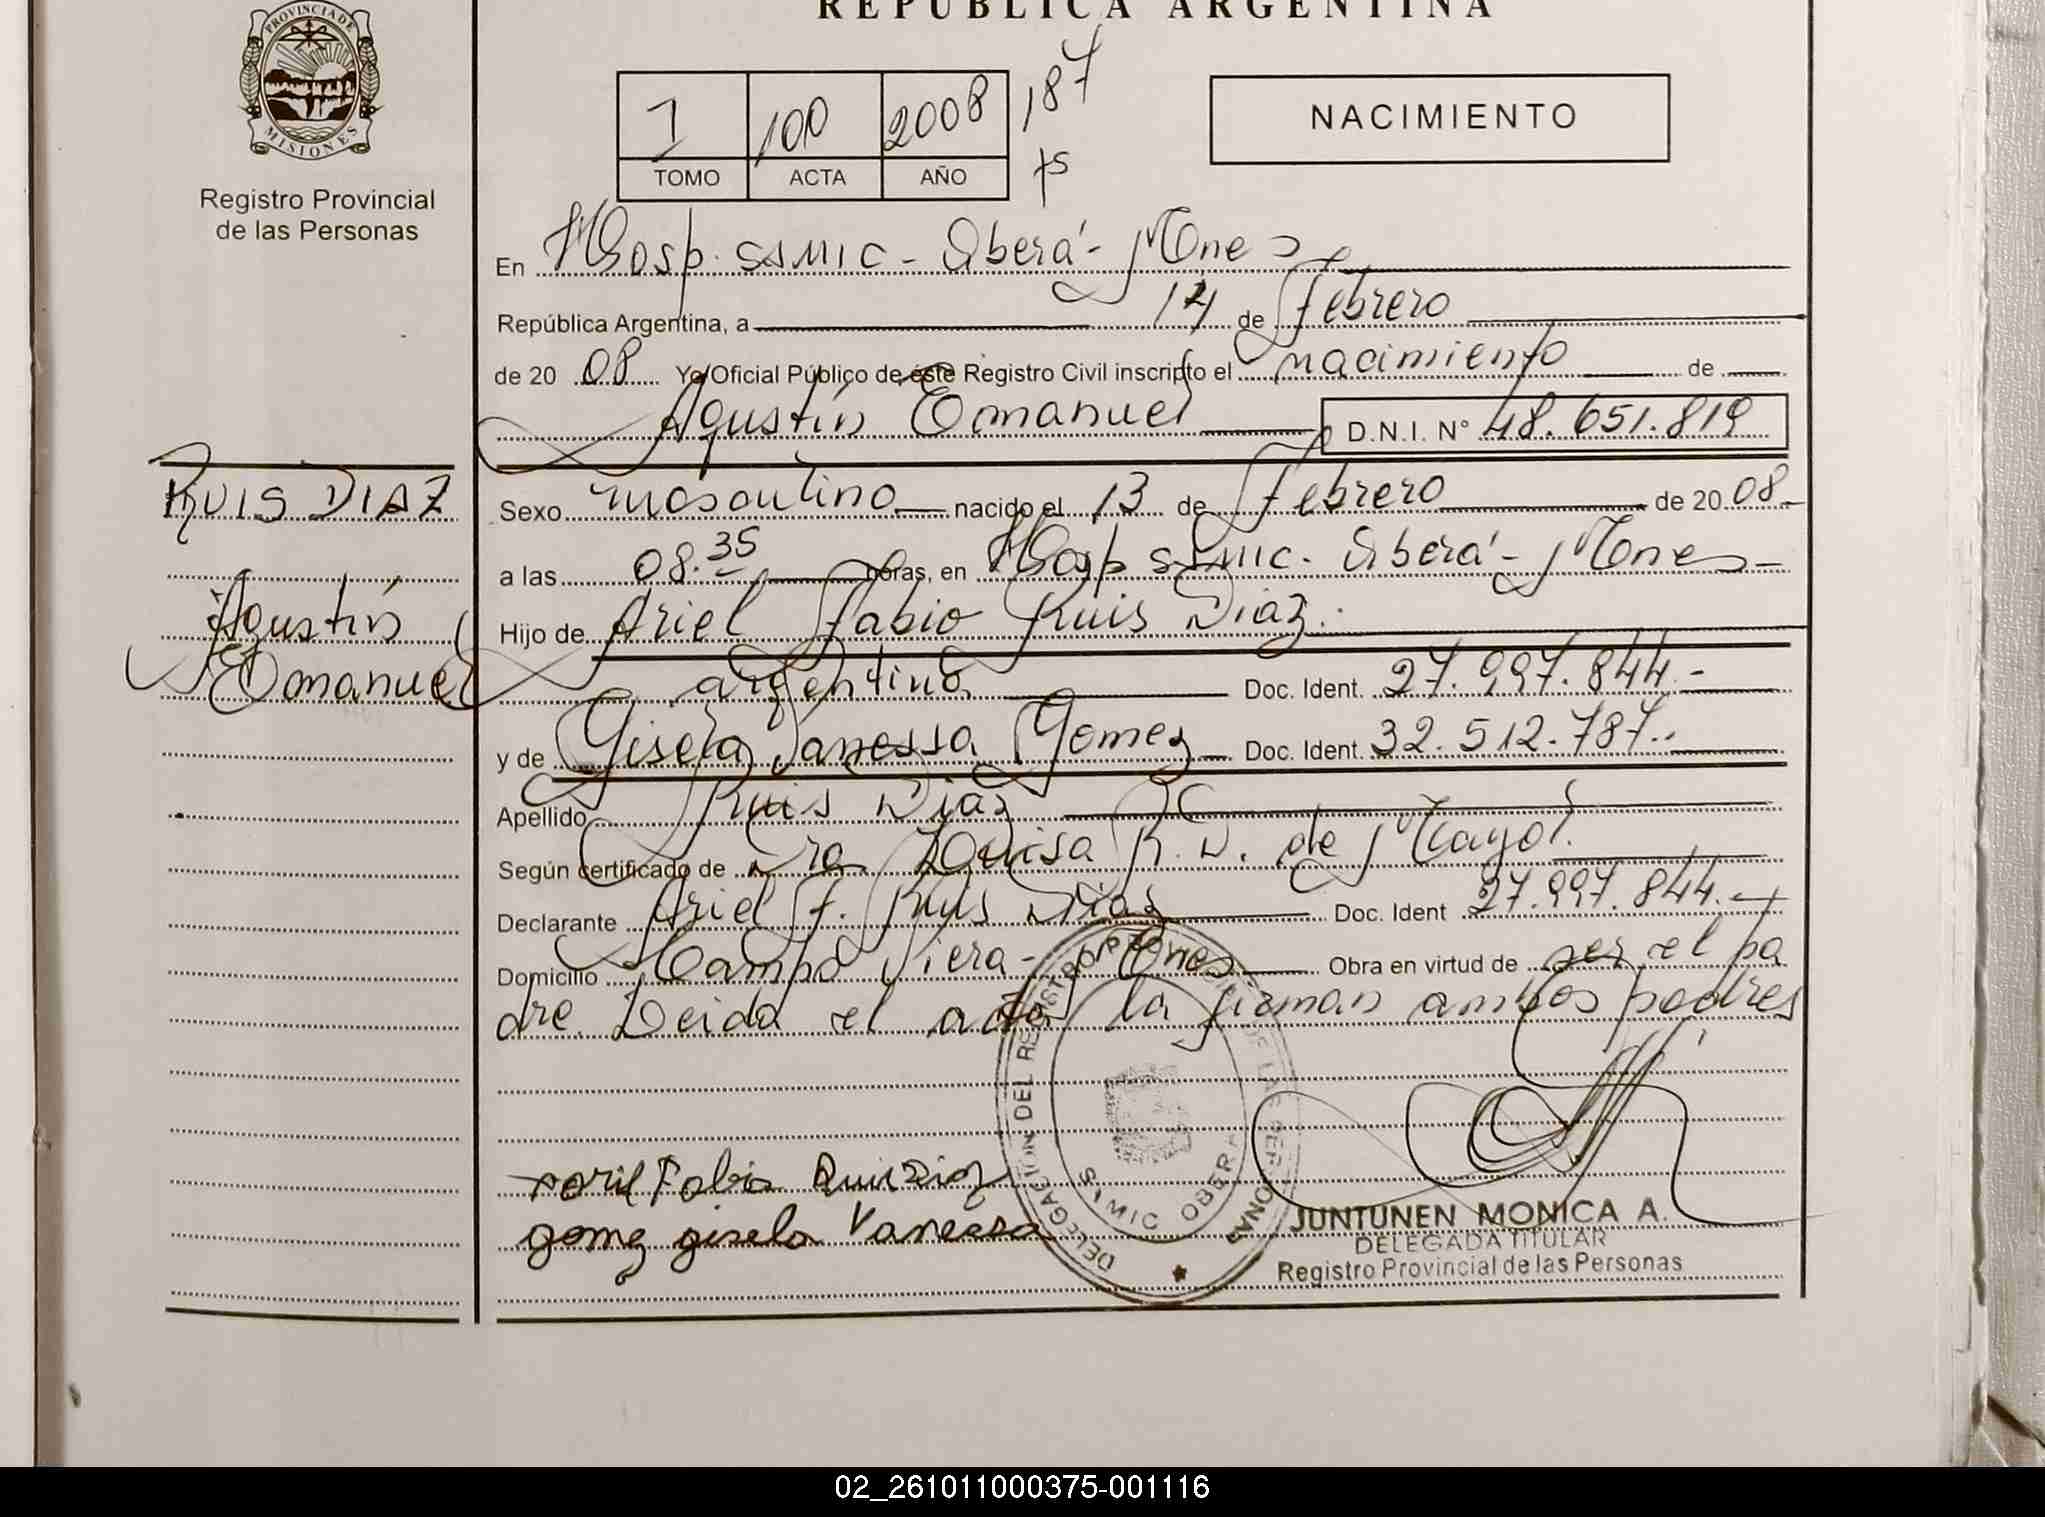 REPUBLICA ARGENTINA
PROVINCIA DE
MISIONES
Registro Provincial
de las Personas
1 100 2008 187
TOMO ACTA AÑO
NACIMIENTO
En Hosp. SAMIC - Oberá - Mnes
República Argentina, a 14 de Febrero
de 20 08 Yo Oficial Público de éste Registro Civil inscripto el nacimiento de
Agustín Emanuel D.N.I. N° 48.651.819
RUIS DIAZ
Agustín
Emanuel
Sexo masculino nacido el 13 de Febrero de 20 08
a las 08.35 horas, en Hosp SAMIC - Oberá - Mones
Hijo de Ariel Fabio Ruis Diaz.
argentino Doc. Ident. 27.997.844.-
y de Gisela Vanessa Gomez Doc. Ident. 32.512.787.-
Apellido Ruis Diaz
Según certificado de Dra Luisa R. D. de Mayol.
Declarante Ariel F. Ruis Diaz Doc. Ident 27.997.844.-
Domicilio Campo Viera - Mnes Obra en virtud de ser el pa
dre. Leida el acta la firman ambos padres
DELEGACION DEL REGISTRO PROVINCIAL DE LAS PERSONAS
SAMIC OBERA
Fabio Ruiz Diaz
gomez gisela Vaneesa
JUNTUNEN MONICA A.
DELEGADA TITULAR
Registro Provincial de las Personas
02_261011000375-001116